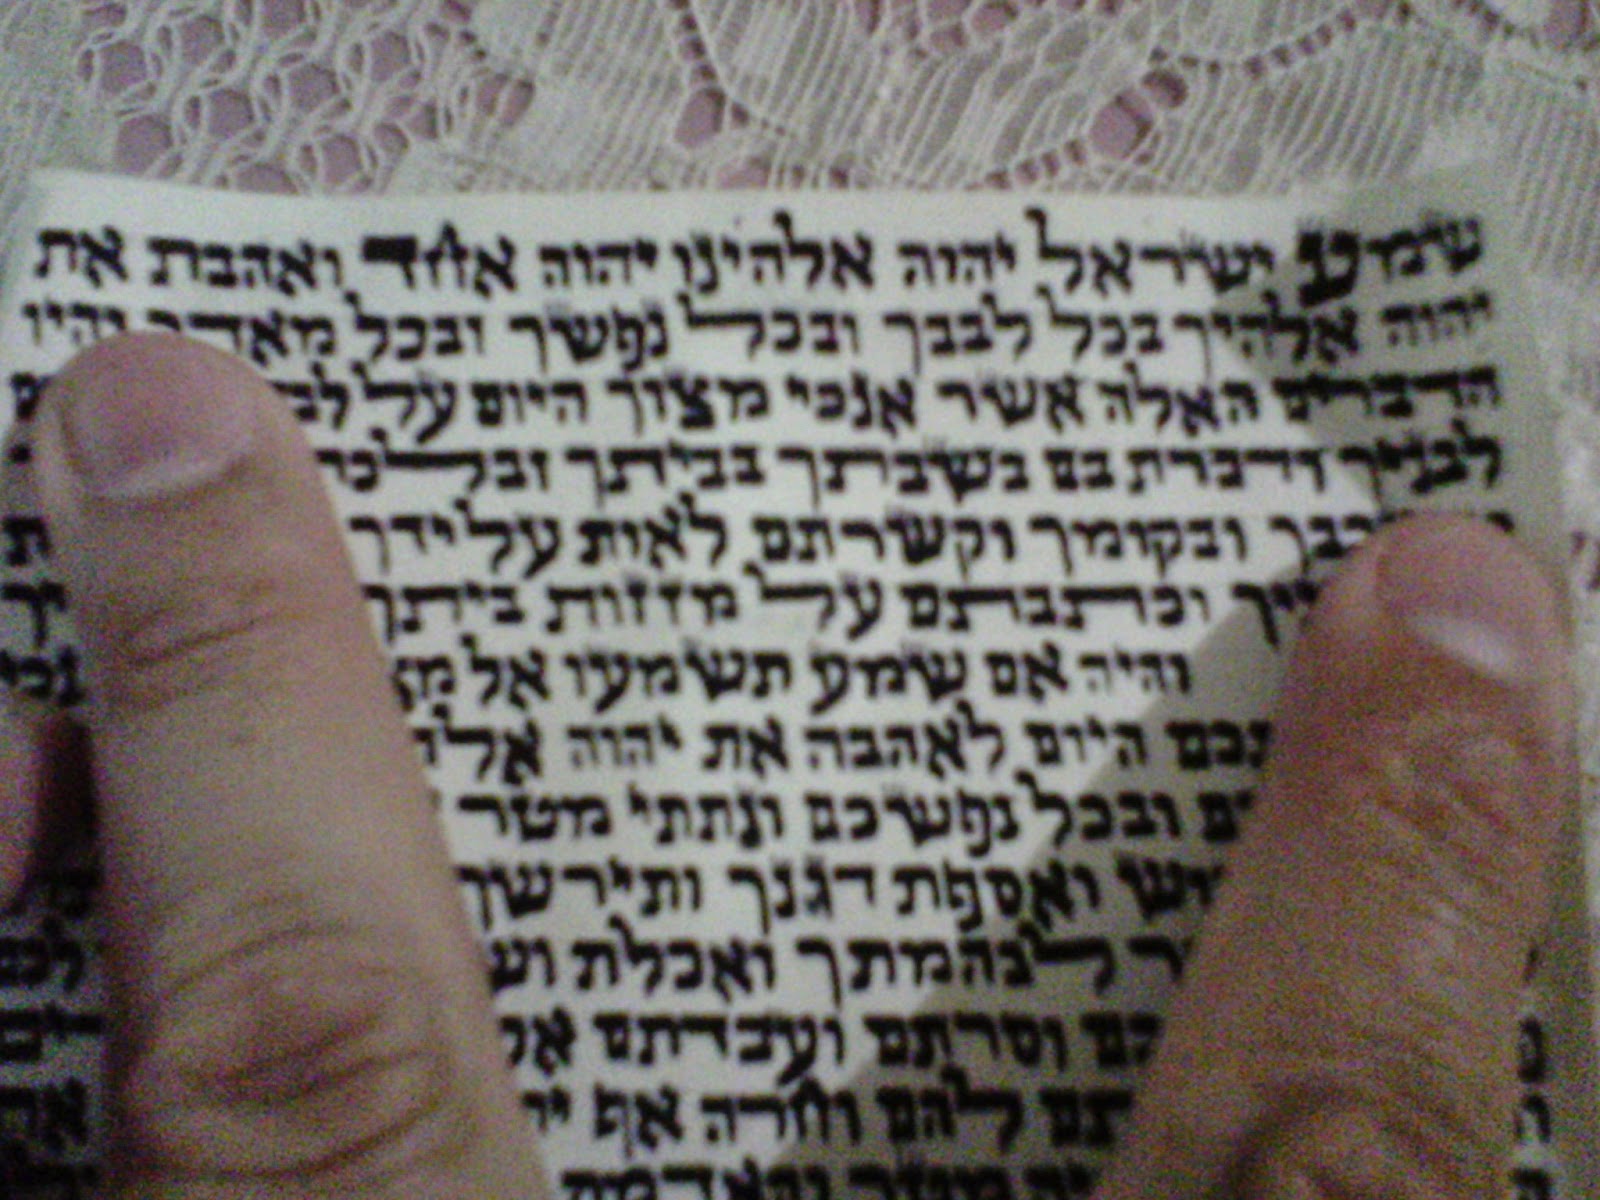 שמע ישראל יהוה אלהינו יהוה אחד ואהבת את
יהוה אלהיך בכל לבבך ובכל נפשך ובכל מאדך והיו
הדברים האלה אשר אנכי מצוך היום על
לבניך ודברת בם בשבתך בביתך
ובקומך וקשרתם לאות על ידך
וכתבתם על מזזות ביתך
והיה אם שמע תשמעו אל
היום לאהבה את יהוה
ובכל נפשכם ונתתי מטר
ואספת דגנך ותירשך
לבהמתך ואכלת
וסרתם ועבדתם
להם וחרה אף